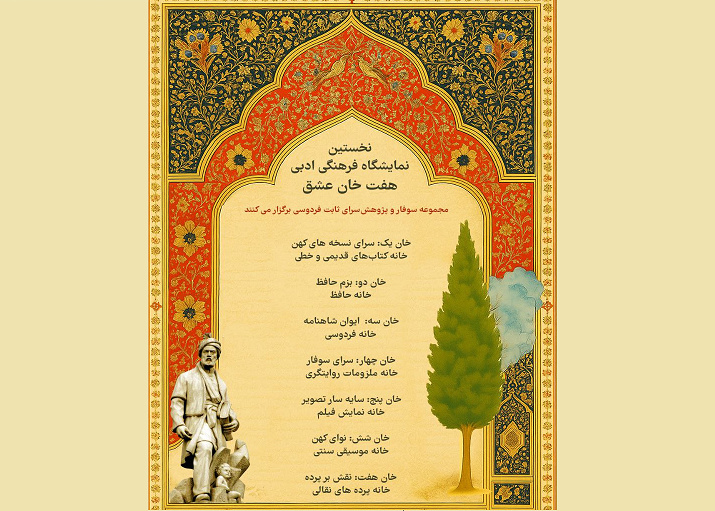 نخستین
نمایشگاه فرهنگی ادبی
هفت خان عشق
مجموعه سوفار و پژوهش‌سرای ثابت فردوسی برگزار می کنند
خان یک: سرای نسخه های کهن
خانه کتاب‌های قدیمی و خطی
خان دو: بزم حافظ
خانه حافظ
خان سه: ایوان شاهنامه
خانه فردوسی
خان چهار: سرای سوفار
خانه ملزومات روایتگری
خان پنج: سایه سار تصویر
خانه نمایش فیلم
خان شش: نوای کهن
خانه موسیقی سنتی
خان هفت: نقش بر پرده
خانه پرده های نقالی